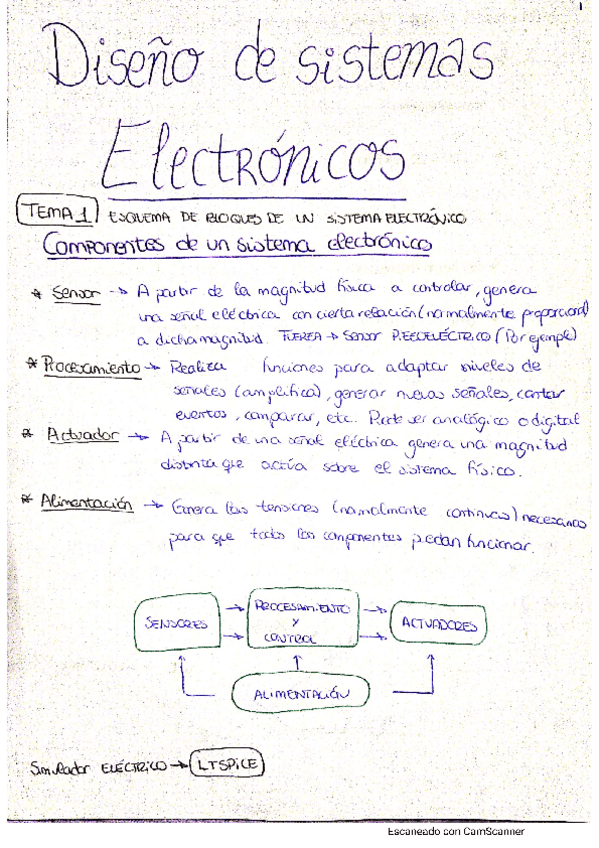 1
Diseño de sistemas
Electrónicos
TEMA 1 ESQUEMA DE BLOQUES DE UN SISTEMA ELECTRÓNICO
Componentes de un sistema electrónico
* Sensor → A partir de la magnitud física a controlar, genera
una señal eléctrica con cierta relación (normalmente proporcional)
a dicha magnitud. FUERZA → SENSOR PIEZOELÉCTRICO (Por ejemplo)
* Procesamiento → Realiza funciones para adaptar niveles de
señales (amplifica), generar nuevas señales, contar
eventos, comparar, etc. Puede ser analógico o digital
* Actuador → A partir de una señal eléctrica genera una magnitud
distinta que actúa sobre el sistema físico.
* Alimentación → Genera las tensiones (normalmente continuas) necesarias
para que todos los componentes puedan funcionar.
SENSORES → PROCESAMIENTO Y CONTROL → ACTUADORES
ALIMENTACIÓN
Simulador ELÉCTRICO → LTSPICE
Escaneado con CamScanner